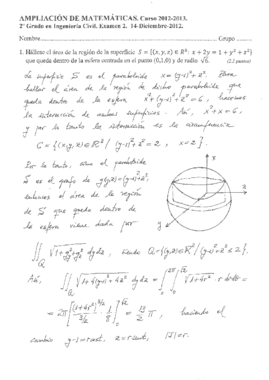 AMPLIACIÓN DE MATEMÁTICAS. Curso 2012-2013.
2º Grado en Ingeniería Civil. Examen 2. 14-Diciembre-2012.
Nombre Grupo
1. Hállese el área de la región de la superficie S = {(x, y, z) ∈ R³: x + 2y = 1 + y² + z²}
que queda dentro de la esfera centrada en el punto (0,1,0) y de radio √6. (2,5 puntos)
La superficie S es el paraboloide x = (y-1)²+z². Para
hallar el área de la región de dicho paraboloide que
queda dentro de la esfera x²+(y-1)²+z² = 6, hacemos
la intersección de ambas superficies. Así, x²+x = 6,
y por lo tanto la intersección es la circunferencia
C = {(x,y,z) ∈ R³ / (y-1)²+z² = 2, x = 2}.
Por lo tanto, como el paraboloide
S es el grafo de g(y,z) = (y-1)²+z²,
entonces el área de la región
de S que queda dentro de
la esfera viene dada por
∬_Q √(1+g_y²+g_z²) dy dz, siendo Q = {(y,z) ∈ R² / (y-1)²+z² ≤ 2}.
Así, ∬_Q √(1+4(y-1)²+4z²) dy dz = ∫₀^{2π} ∫₀^{√2} √(1+4r²) · r dr dθ =
= 2π [ (1+4r²)^{3/2} / (3/2) · 1/8 ]₀^{√2} = 13/3 π, haciendo el
cambio y-1 = r cos t, z = r sen t, |J| = r.